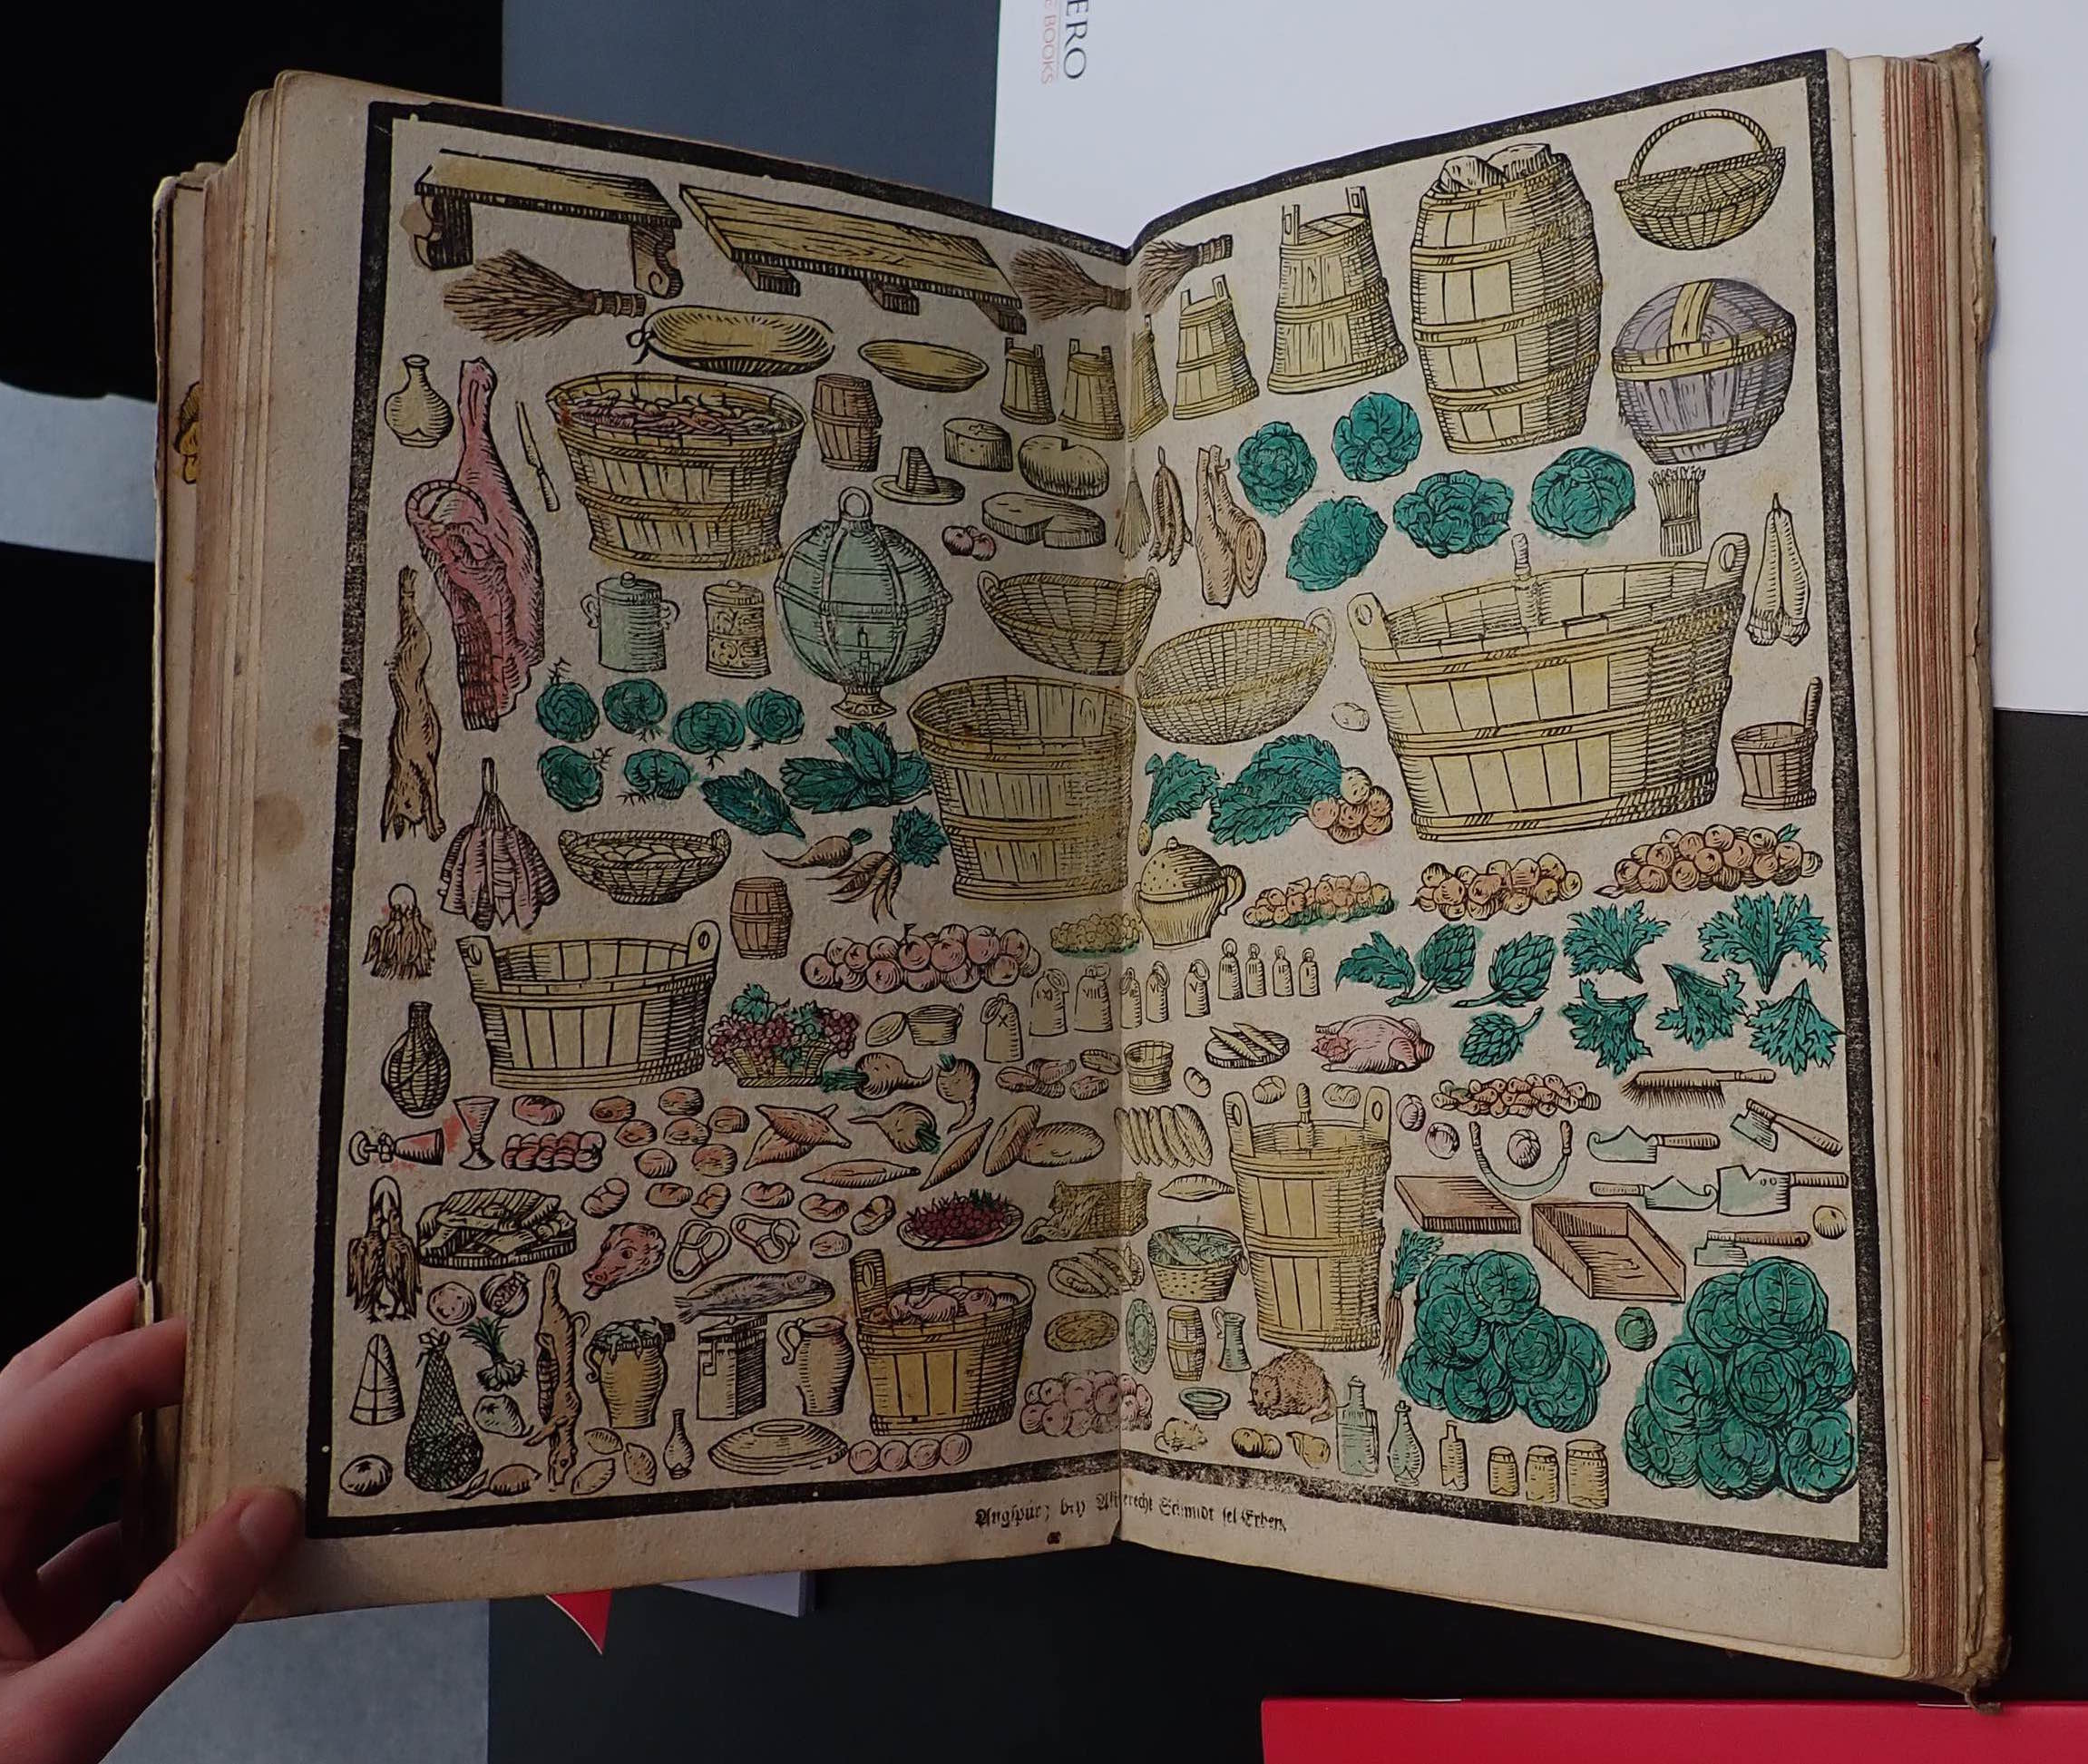 ERO
BOOKS
XI VIII
X
Augspur; bey Albrecht Schmidt sel Erben.